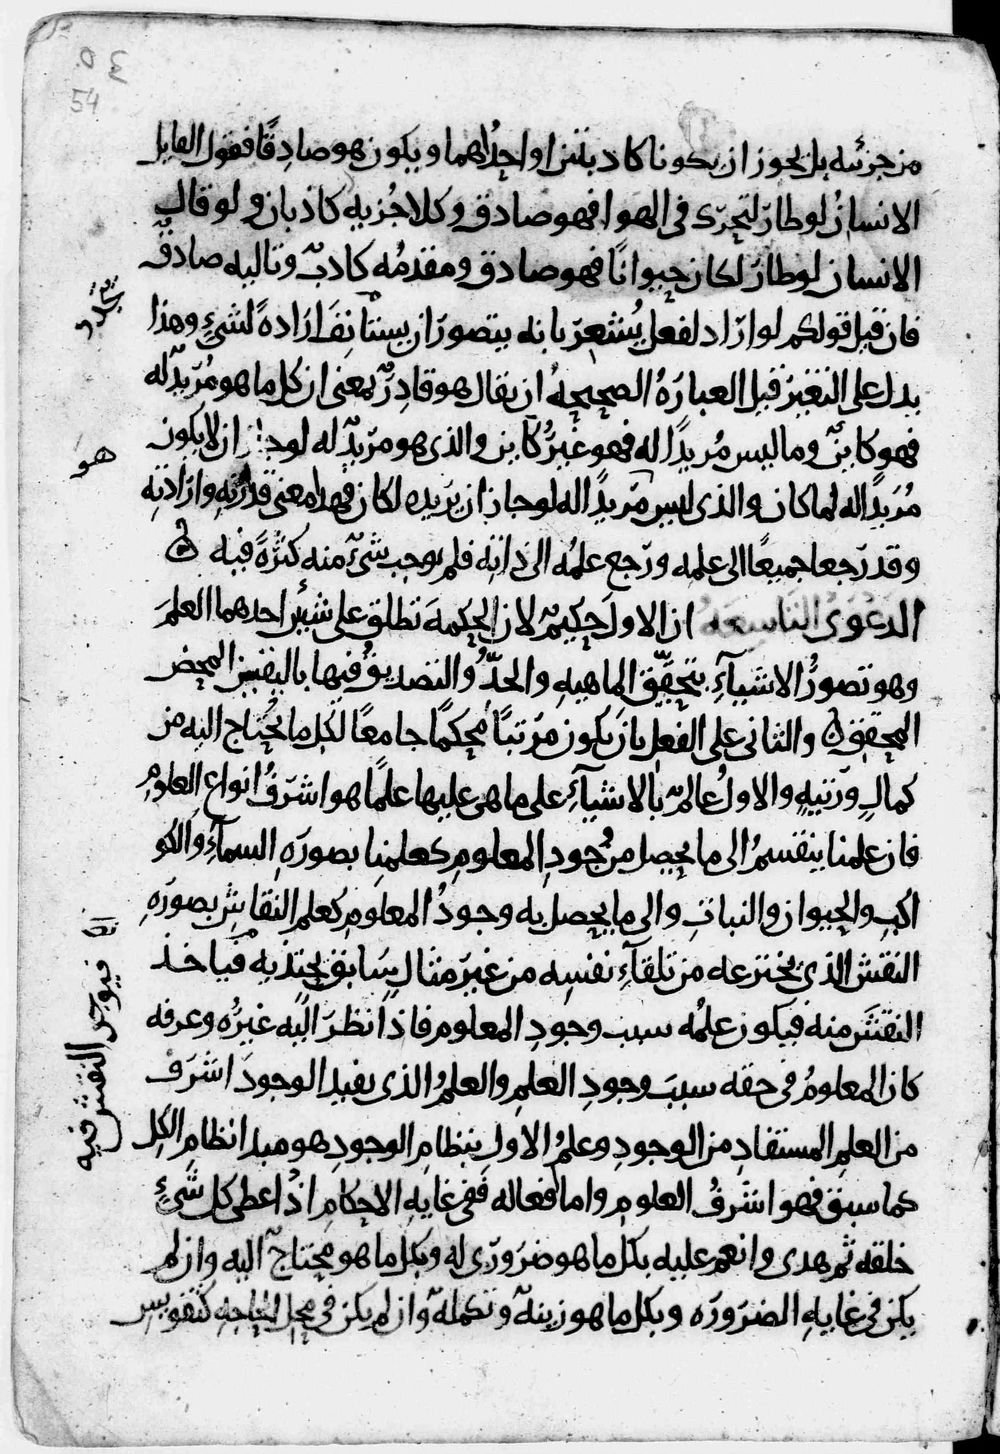 ٥٤
54
من جزئيه بل يجوز ان يكونا كاذبتين او احداهما ويكون هو صادقًا فقول القايل
الانسان لو طار لتحرّك فى الهوا فهو صادق وكلا جزيه كاذبان ولو قال
الانسان لو طار لكان حيوانًا فهو صادق ومقدمُه كاذبٌ وتاليه صادقٌ
فان قيل قولكم لو اراد لفعل يُشعر بانه يتصور ان يستأنِفَ ارادهً لشىءٍ وهذا
يدل على التغير قيل العباره الصحيحه ان يقال هو قادرٌ بمعنى ان كل ما هو مُريدٌ له
فهو كاينٌ وما ليس مُريدًا له فهو غيرُ كاين والذى هو مريدٌ له لو جاز ان لا يكون
مُريدًا له لما كان والذى ليس مريدًا له لو جاز ان يريده لكان فهذا معنى قدرته وارادته
وقد رجعا جميعًا الى علمه ورجع علمُه الى ذاته فلم يوجب شىءٌ منه كثرهً فيه
الدعوى التاسعه ان الاول حكيمٌ لان الحكمهَ تطلق على شيئين احدهما العلم
وهو تصورُ الاشياءِ بتحقّق الماهيهِ والحدِّ والتصديقُ فيها باليقين المحض
المحقق والثانى على الفعل بان يكون مرتبًا محكمًا جامعًا لكل ما يحتاج اليه من
كمالٍ وزينهٍ والاولُ عالمٌ بالاشياءِ على ما هى عليها علمًا هو اشرفُ انواع العلوم
فان علمنا ينقسمُ الى ما يحصل من وُجودِ المعلومِ كعلمنا بصورهِ السماءِ والكو
اكبِ والحيوان والنباتِ والى ما يحصل به وجودُ المعلومِ كعلم النقاشِ بصورهِ
النقش الذى يخترعه من تلقاءِ نفسِه من غير مثالٍ سابق يحتذيه فياخذ
النقشَ منه فيكون علمُه سبب وجودِ المعلوم فاذا نظر اليه غيرُه وعرفه
كان المعلومُ فى حقه سببَ وجودِ العلمِ والعلمُ الذى يفيد الوجودَ اشرف
من العلمِ المستفادِ من الوجودِ وعلمُ الاولِ بنظامِ الوجودِ هو مبدا نظامِ الكل
كما سبق فهو اشرفُ العلومِ واما افعاله ففى غايهِ الاحكامِ اذ اعطى كل شىءٍ
خلقه ثم هدى وانعم عليه بكل ما هو ضرورى له وبكل ما هو محتاجٌ اليه وان لم
يكن فى غايهِ الضروره وبكل ما هو زينهٌ وتكملهٌ وان لم يكن فى محل الحاجهِ كتقويس
هو
فيوجد النقش فيه